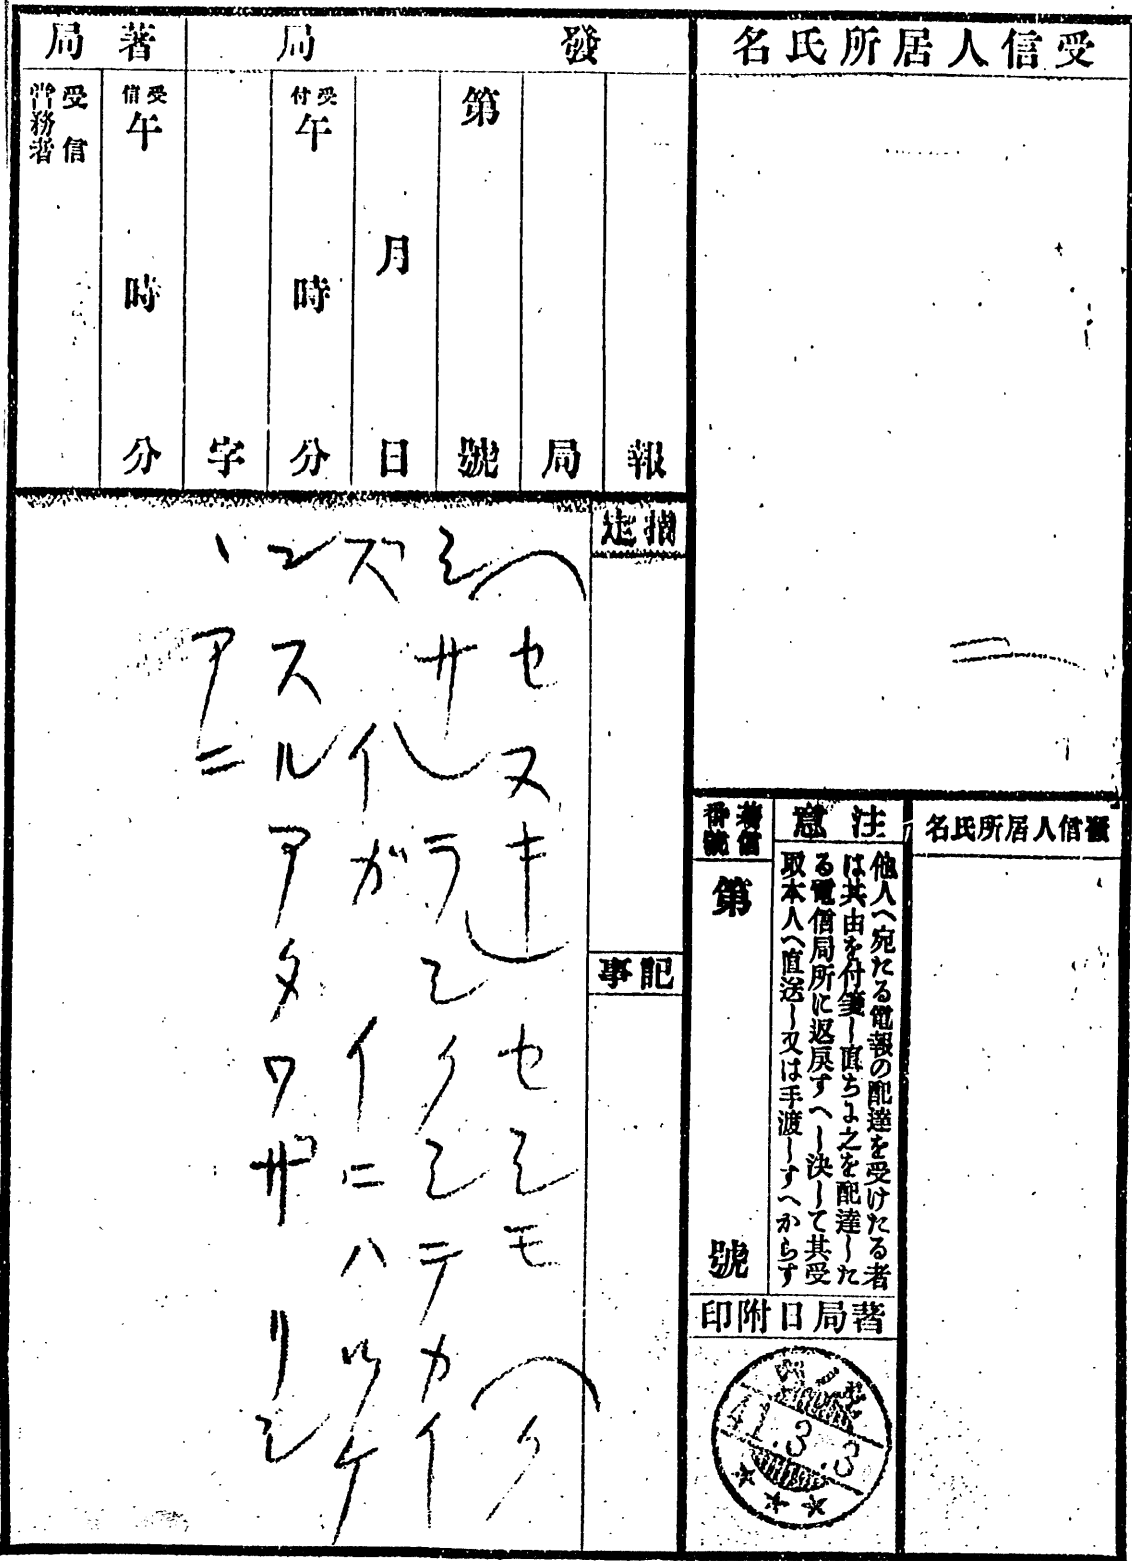 受信人居所氏名
發局
著局
報
局
第號
月日
受付午時分
字
受信午時分
受信
営務者
指定
記事
(セヌキ)セミモ(ク
ミサ)ラミクミテカイ
ズイガイニハ
スルアタワザリシ
アニ
發信人居所氏名
注意
他人へ宛たる電報の配達を受けたる者
は其由を付箋し直ちに之を配達した
る電信局所に返戻すへし決して其受
取本人へ直送し又は手渡しすへからす
著信番號
第號
著局日附印
41.3.3